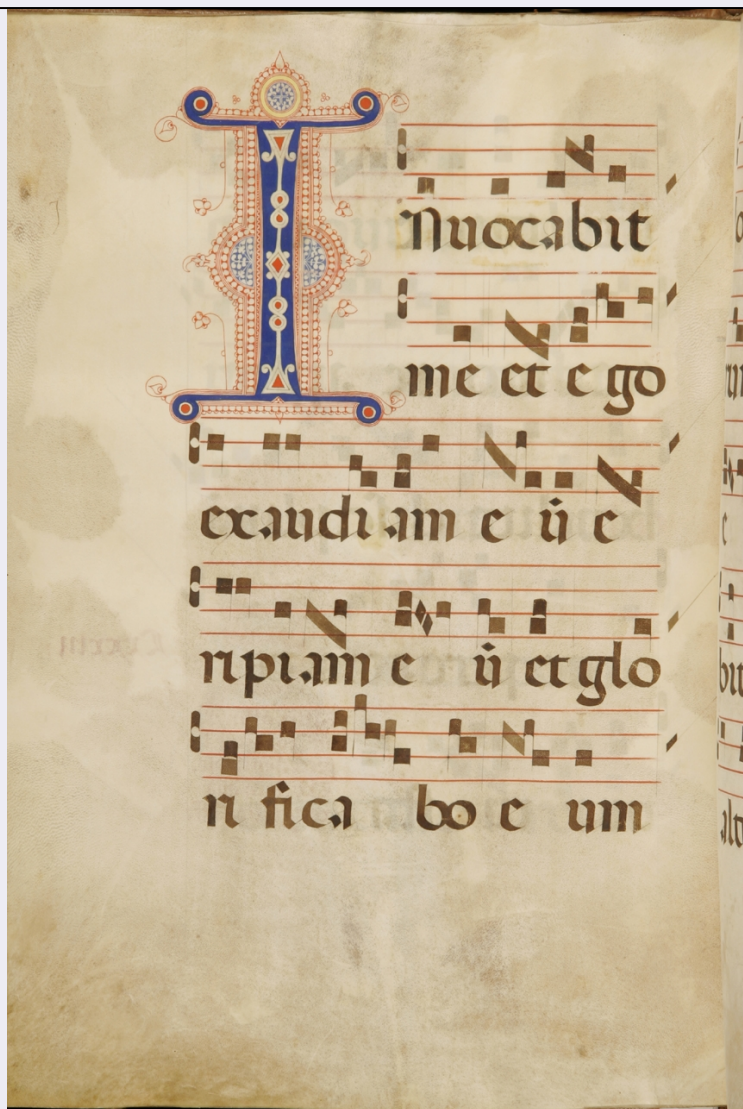 INuocabit
me et ego
exaudiam e ū e
ripiam e ū et glo
ri fica bo e um